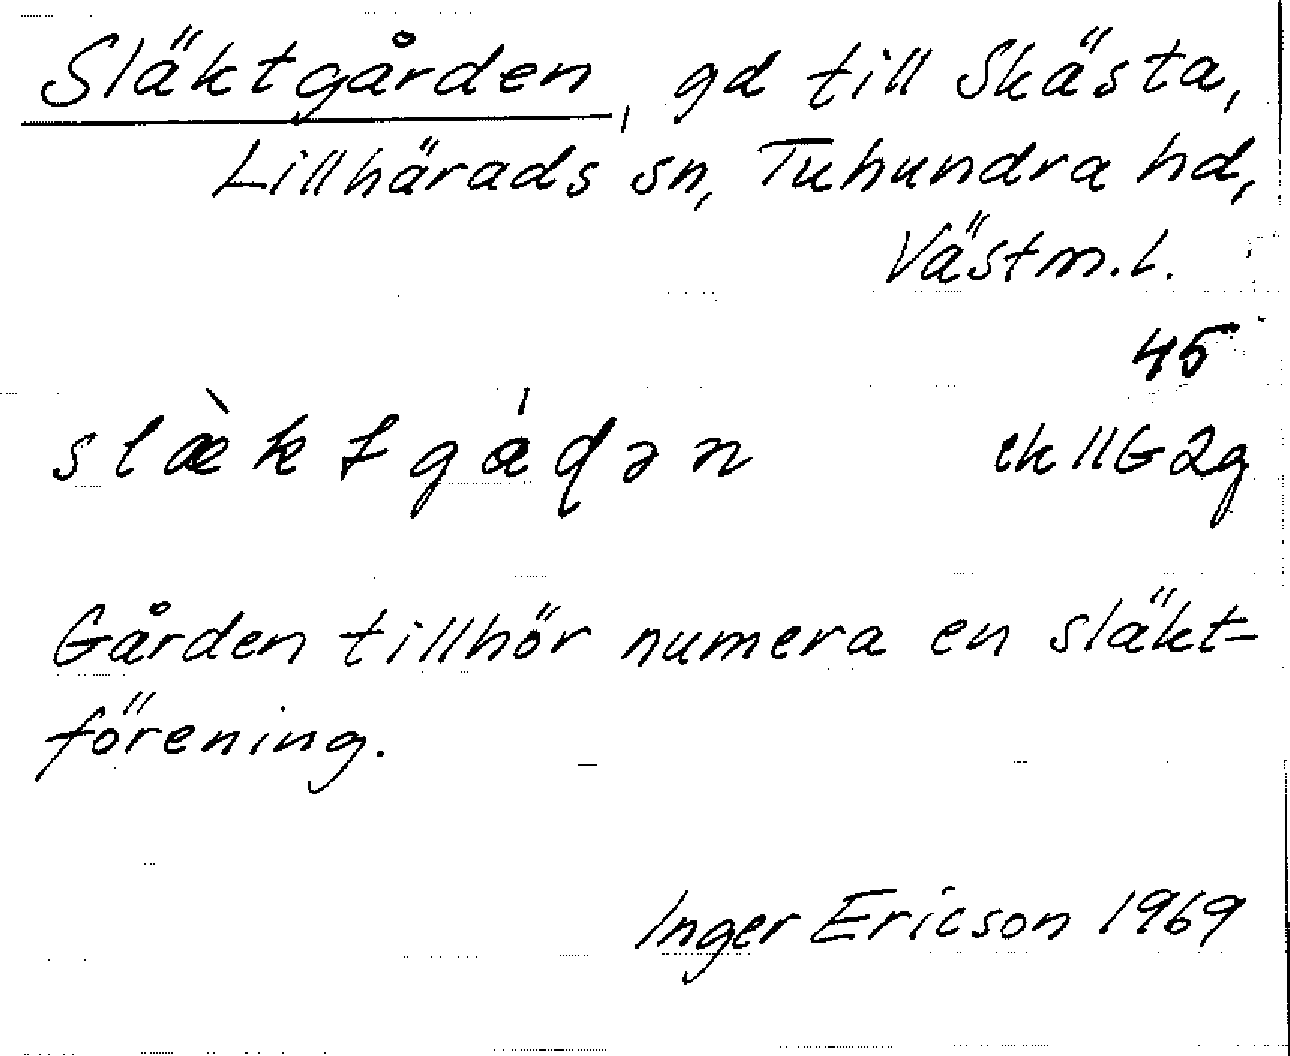 Släktgården, gd till Skästa,
Lillhärads sn, Tuhundra hd,
Västm.l.
45
slæ̀ktgáɖən ek 11G2g
Gården tillhör numera en släkt-
förening.
Inger Ericson 1969